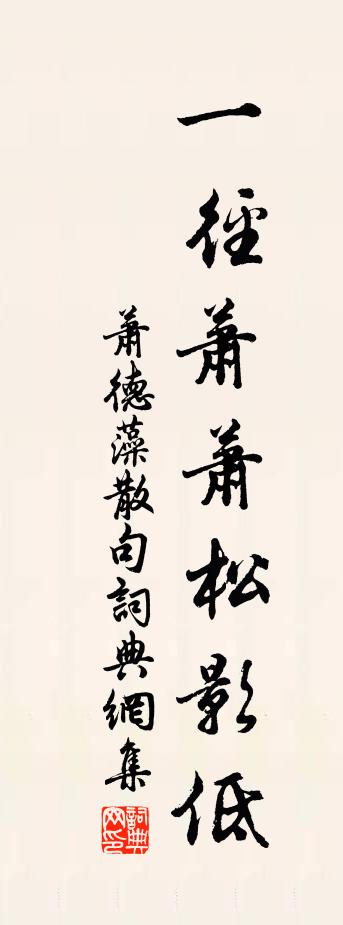 一徑蕭蕭松影低
蕭德藻散句詞典網集
詞典網印